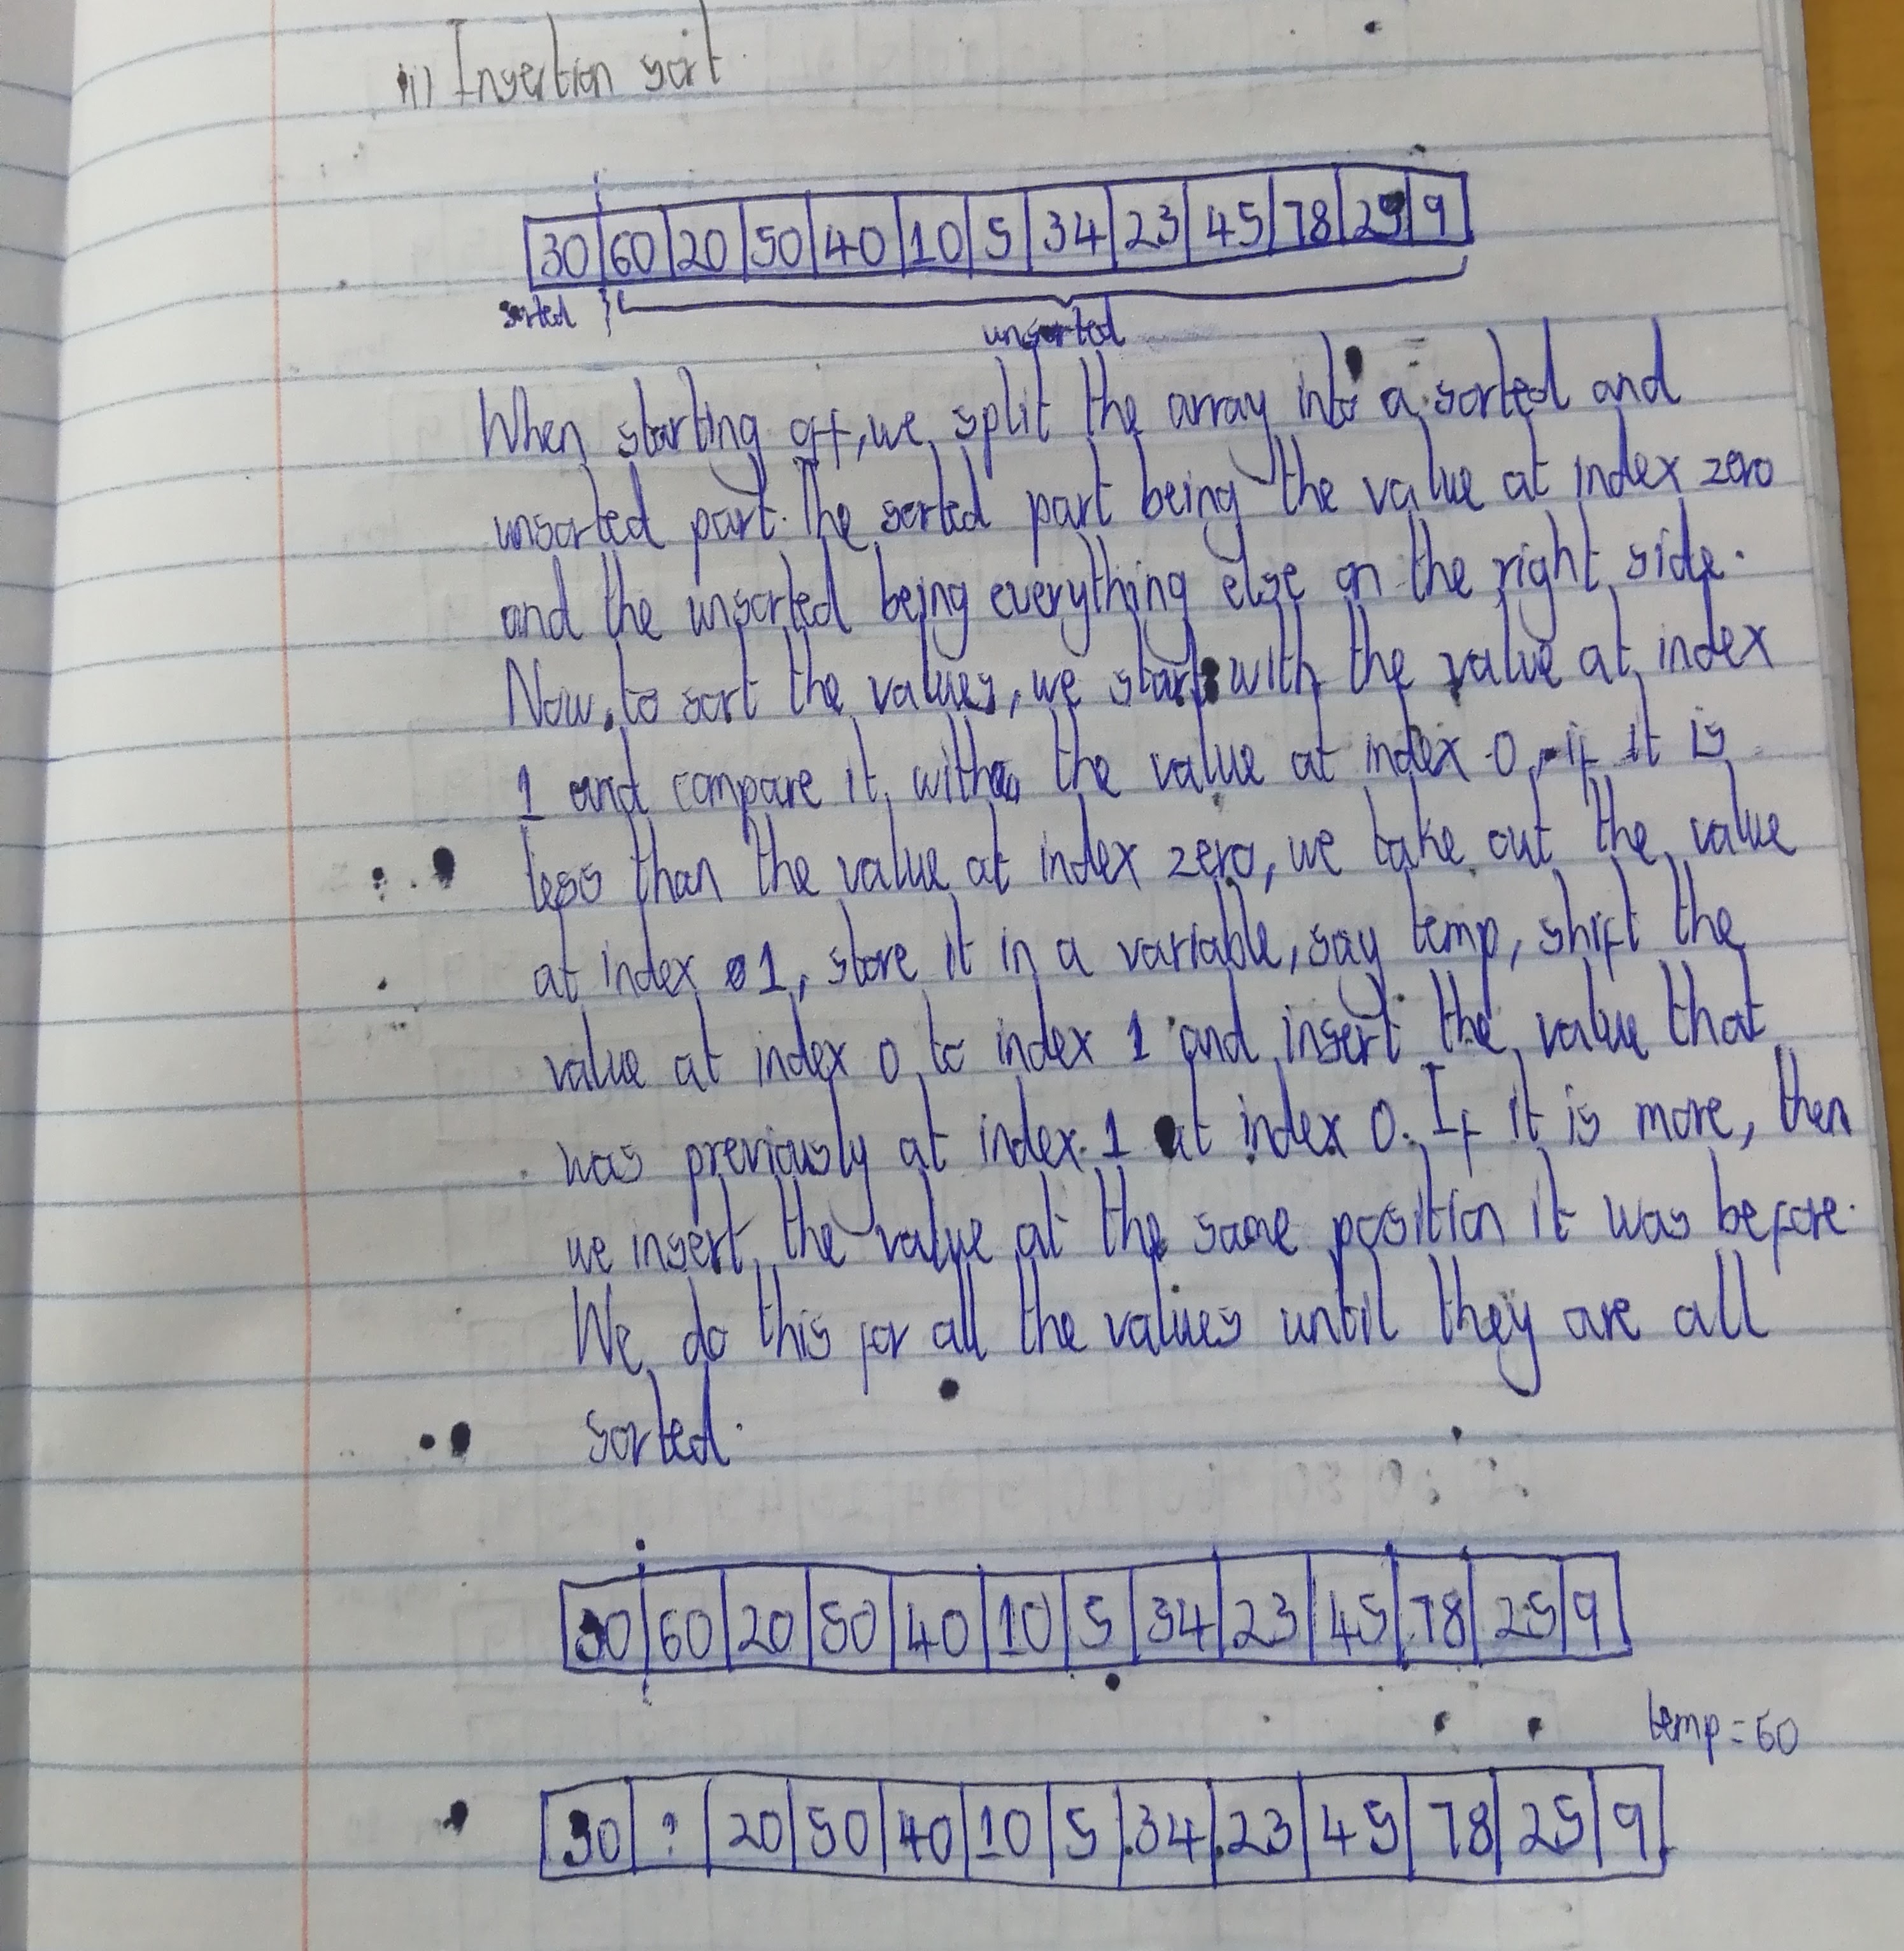 ii) Insertion sort.
30 60 20 50 40 10 5 34 23 45 78 25 9
sorted unsorted
When starting off, we split the array into a sorted and
unsorted part. The sorted part being the value at index zero
and the unsorted being everything else on the right side.
Now, to sort the values, we start with the value at index
1 and compare it with the value at index 0, if it is
less than the value at index zero, we take out the value
at index 1, store it in a variable, say temp, shift the
value at index 0 to index 1 and insert the value that
was previously at index 1 at index 0. If it is more, then
we insert the value at the same position it was before.
We do this for all the values until they are all
sorted.
30 60 20 50 40 10 5 34 23 45 78 25 9
temp = 60
30 ? 20 50 40 10 5 34 23 45 78 25 9